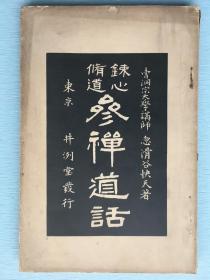 曹洞宗大學講師 忽滑谷快天著
錬心
脩道
參禪道話
東京 井冽堂發行